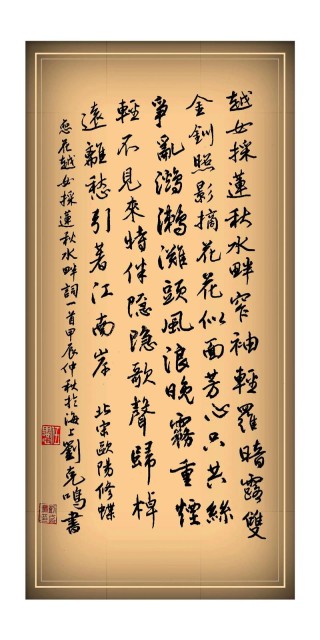 越女採蓮秋水畔窄袖輕羅暗露雙
金釧照影摘花花似面芳心只共絲
爭亂鸂鶒灘頭風浪晚霧重煙
輕不見來時伴隐隐歌聲歸棹
遠離愁引著江南岸 北宋歐陽修蝶
恋花越女採蓮秋水畔詞一首甲辰仲秋於海上劉克鳴書